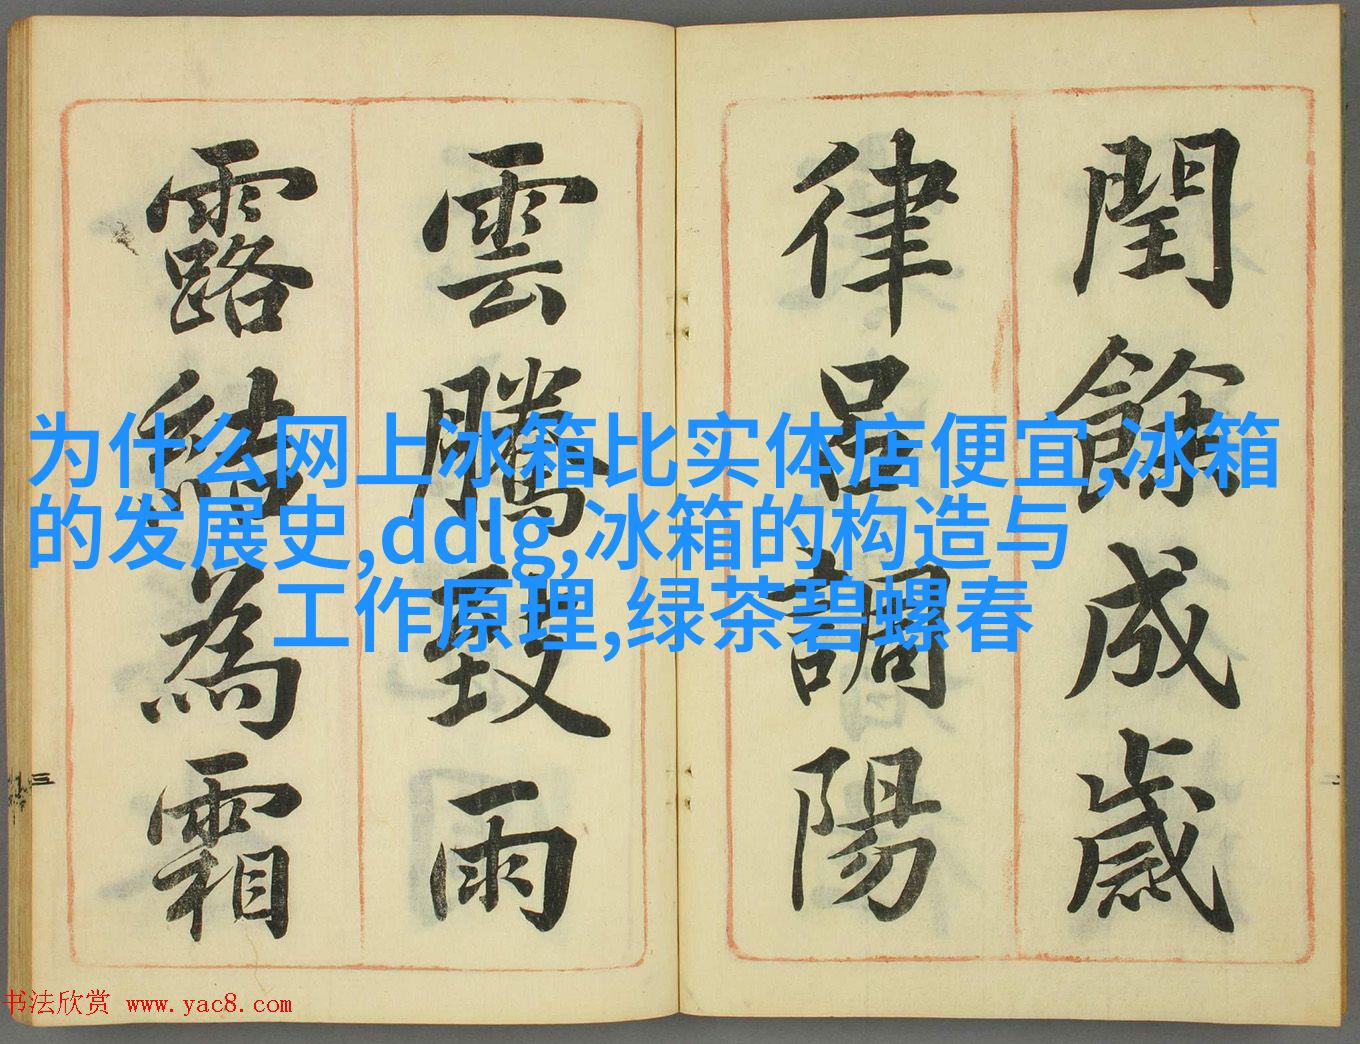 閏餘成歲
律呂調陽
雲騰致雨
露結為霜
为什么网上冰箱比实体店便宜,冰箱
的发展史,ddlg,冰箱的构造与
工作原理,绿茶碧螺春
三
二
书法欣赏 www.yac8.com